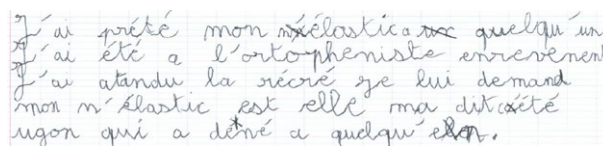 J'ai prété mon élastic a quelqu'un
J'ai été a l'ortopheniste enrevenent
J'ai atandu la récré ge lui demand
mon n'élastic est elle ma dit été
ugon qui a dené a quelqu'un.